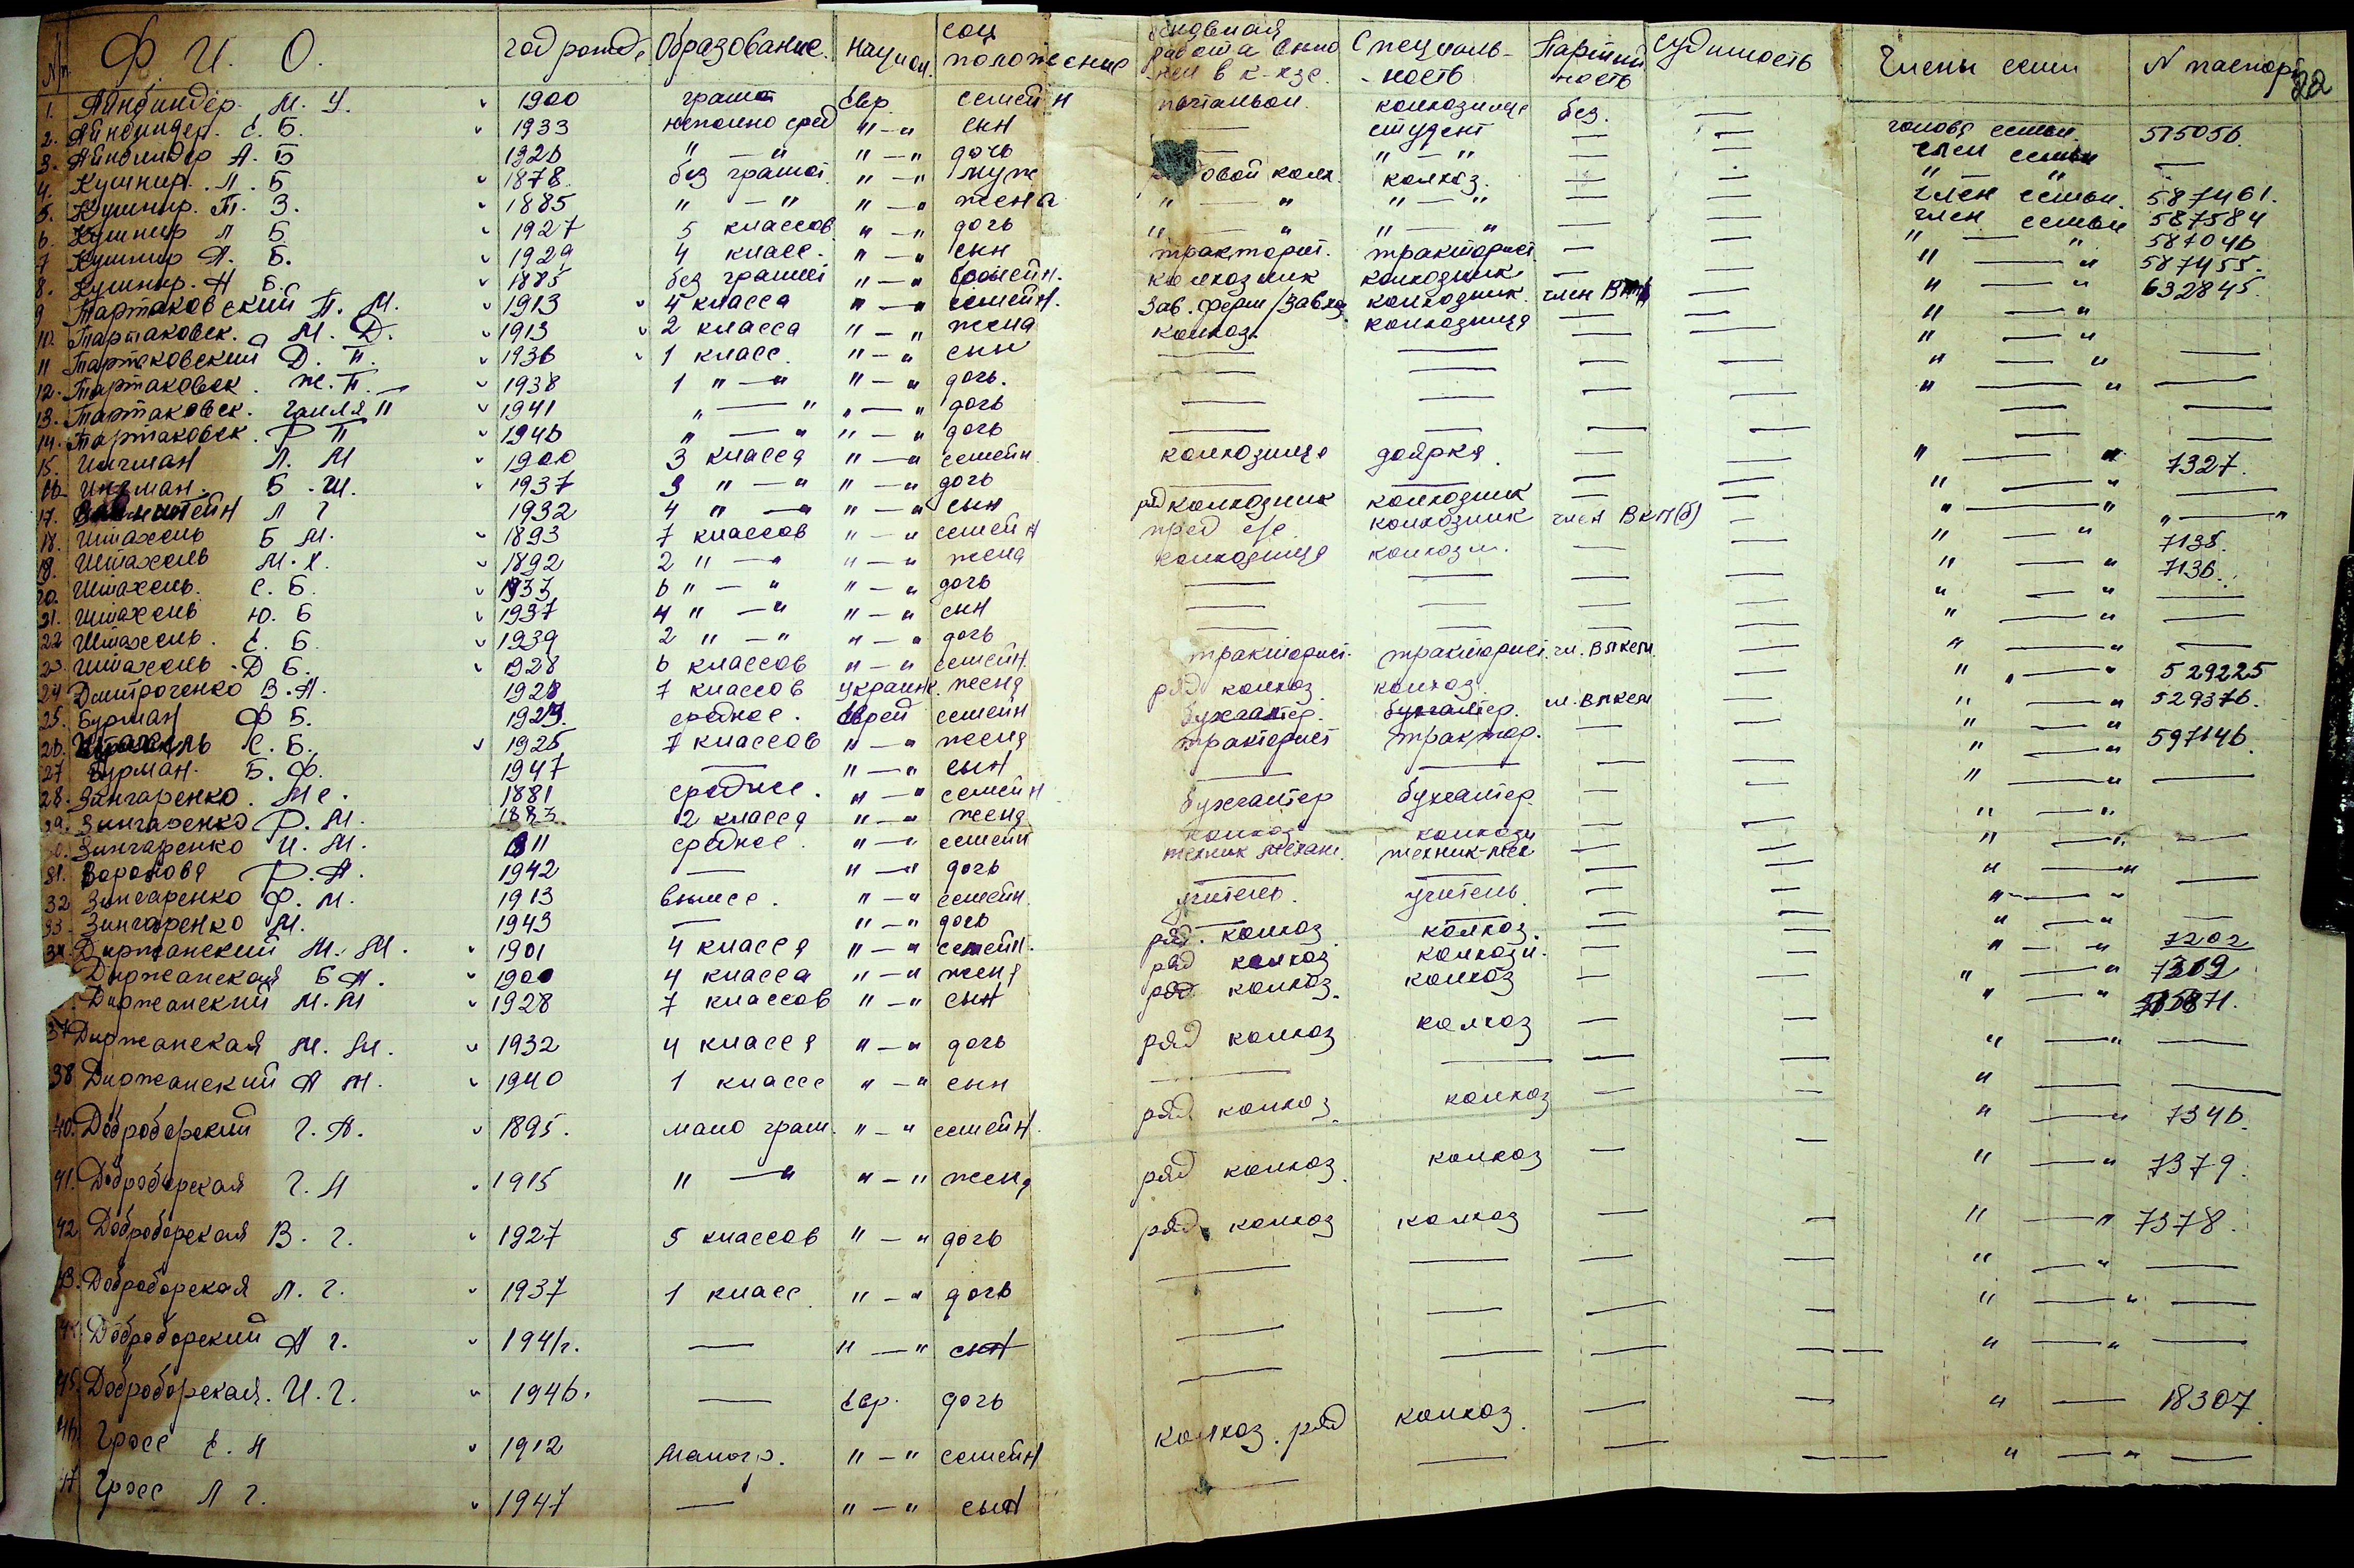 № Ф. И. О. год рожд. Образование. Национ. соц положение работа в к-хозе. Специаль-ность Партийность судимость Члены семьи N паспорт 22
1. Айнбиндер. М. У. 1900 грамот евр. семейн почтальон. колхозница без. — голова семьи 515056.
2. Айнбиндер. С. Б. 1933 неполно сред "—" сын — студент — — член семьи —
3. Айнбиндер А. Б 1926 "—" "—" дочь — "—" — — "—"
4. Кушнир. Л. Б 1878. без грамот. "—" муж колх. колхоз. — — член семьи. 587461.
5. Кушнир. Т. З. 1885 "—" "—" жена "—" "—" — — член семьи 587584
6. Кушнир Л Б 1927 5 классов "—" дочь "—" "—" — — "—" 587046
7 Кушнир А. Б. 1929 4 класс. "—" сын тракторист. тракторист — — "—" 587455.
8. Кушнир. Н Б. 1885 без грамот "—" семейн. колхозник колхозник — — "—" 632845
9 Тартаковский П. М. 1913 4 класса "—" семейн. Зав. ферм/Завхоз колхозник. член — "—"
10. Тартаковск. М. Д. 1913 2 класса "—" жена колхоз. колхозница — — "—"
11 Тартаковский Д. П. 1936 1 класс. "—" сын — — — — "—" —
12. Тартаковск. Ж. П. 1938 1 "—" "—" дочь. — — — — "—" —
13. Тартаковск. Галля П 1941 "—" "—" дочь — — — — — —
14. Тартаковск. Р П 1946 "—" "—" дочь — — — — — —
15. Ингман Л. М 1900 3 класса "—" семейн. колхозница доярка. — — "—" 7327.
16 Ингман. Б. Ш. 1937 3 "—" "—" дочь — — — — "—" —
17. Л Г 1932 4 "—" "—" сын ряд колхозник колхозник — — "—" "—"
18. Штахель Б М. 1893 7 классов "—" семейн пред с/с колхозник член ВКП(б) — "—" 7135.
19. Штахель М. Х. 1892 2 "—" "—" жена колхозница колхозн. — — "—" 7136.
20. Штахель. С. Б. 1933 6 "—" "—" дочь — — — — "—" —
21. Штахель Ю. Б 1937 4 "—" "—" сын — — — — "—" —
22 Штахель. Е. Б. 1939 2 "—" "—" дочь — — — — "—" —
23. Штахель Д Б. 1928 6 классов "—" семейн. тракторист. тракторист. чл. ВЛКСМ. — "—" 529225
24 Дмитроченко В. А. 1928 7 классов Украинк. жена ряд колхоз. колхоз. — "—" 529376.
25. Бурман Ф Б. среднее. Еврей семейн бухгалтер. бухгалтер. чл. ВЛКСМ — "—" 597146.
26. Штахель С. Б. 1925 7 классов "—" жена тракторист трактор. — — "—"
27 Бурман. Б. Ф. 1947 — "—" сын — — — — "—" —
28. Зингаренко. М с. 1881 среднее. "—" семейн бухгалтер бухгалтер — — "—"
29. Зингаренко Р. М. 1883. 2 класса "—" жена колхоз колхозн — "—" —
30. Зингаренко И. М. 1911 среднее. "—" семейн техник механ. техник-мех — — "—"
31. Воронова Р. А. 1942 — "—" дочь — — — — "—" —
32 Зингаренко Ф. М. 1913 высшее. "—" семейн. учитель. учитель. — — "—"
33. Зингаренко М. 1943 — "—" дочь — — — — "—" —
34. Диржанский М. М. 1901 4 класса "—" семейн. ряд. колхоз колхоз. — — "—" 7202
Диржанская Б А. 1900 4 класса "—" жена ряд колхоз колхозн. — — "—" 7309
Диржанский М. М 1928 7 классов "—" сын ряд колхоз. колхоз — — "—"
37 Диржанская М. М. 1932 4 класса "—" дочь ряд колхоз колхоз — — "—" —
38 Диржанский А М. 1940 1 класс "—" сын — — — — " — —
40. Доброборский Г. А. 1895. мало грам. "—" семейн. ряд колхоз. колхоз — — "—" 7346.
41. Доброборская Г. Н 1915 "—" "—" жена ряд колхоз. колхоз — — "—" 7379.
42 Доброборская В. Г. 1927 5 классов "—" дочь ряд. колхоз колхоз — "—" 7378.
43. Доброборская Л. Г. 1937 1 класс "—" дочь — — — — "—" —
44. Доброборский А Г. 1941г. — "—" сын — — — — "—" —
45. Доброборская. И. Г. 1946. — евр. дочь — — — — "—" —
46. Гросс Е. Н 1912 Малогр. "—" семейн колхоз. ряд колхоз. — — " — 18307.
47 Гросс Л Г. 1947 — "—" сын — — — — "—" —